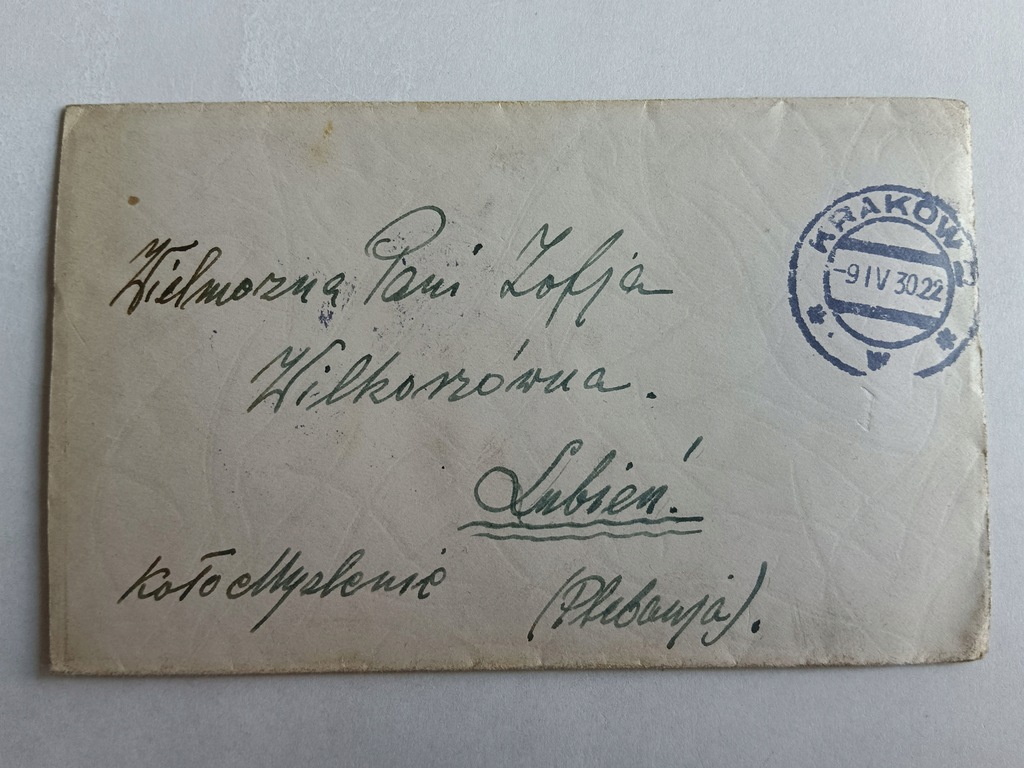 Wielmożna Pani Zofja
Wilkoszówna.
Lubień.
koło Myślenic
(Plebanja).
KRAKÓW 2
-9 IV 30 22
* w *